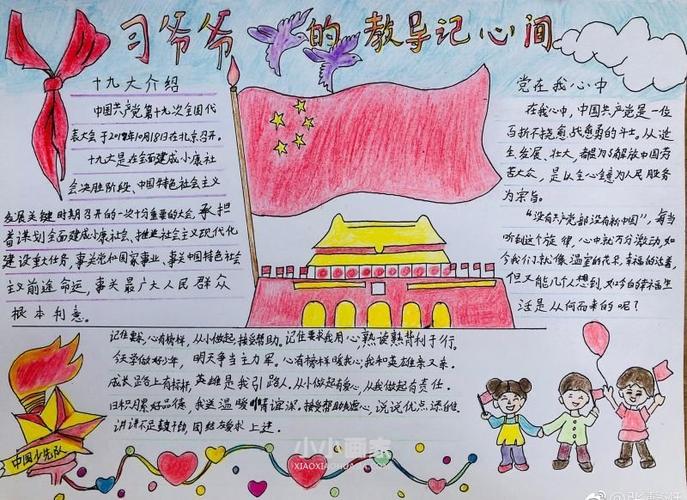 习爷爷的教导记心间
十九大介绍
中国共产党第十九次全国代
表大会于2018年10月18日在北京召开。
十九大是在全面建成小康社
会决胜阶段、中国特色社会主义
发展关键时期召开的一次十分重要的大会，承担
着谋划全面建成小康社会、推进社会主义现代化
建设重大任务，事关党和国家事业、事关中国特色社会
主义前途命运，事关最广大人民群众
根本利意。
党在我心中
在我心中，中国共产党是一位
百折不挠愈战愈勇的斗士。从诞
生、发展、壮大，都为了解放中国劳
苦大众，是以全心全意为人民服务
为宗旨。
"没有共产党就没有新中国"，每当
听到这个旋律，心中就万分激动，如
今我们就像温室的花朵，幸福的活着，
但又能几个人想到，如今的幸福生
活是从何而来的呢？
记住要求，心有榜样，从小做起，接受帮助。记住要求我用心，熟读熟背利于行。
今天争做好少年，明天争当主力军。心有榜样暖我心，我和英雄来交。
成长路上有标杆，英雄是我引路人。从小做起有爱心，从我做起有责任。
日积月累好品德，我送温暖情谊深。接受帮助要虚心，说说优点
讲讲不足鼓干劲，团结友爱求上进。
中国少先队
小小画家
XIAOXIAOHUA